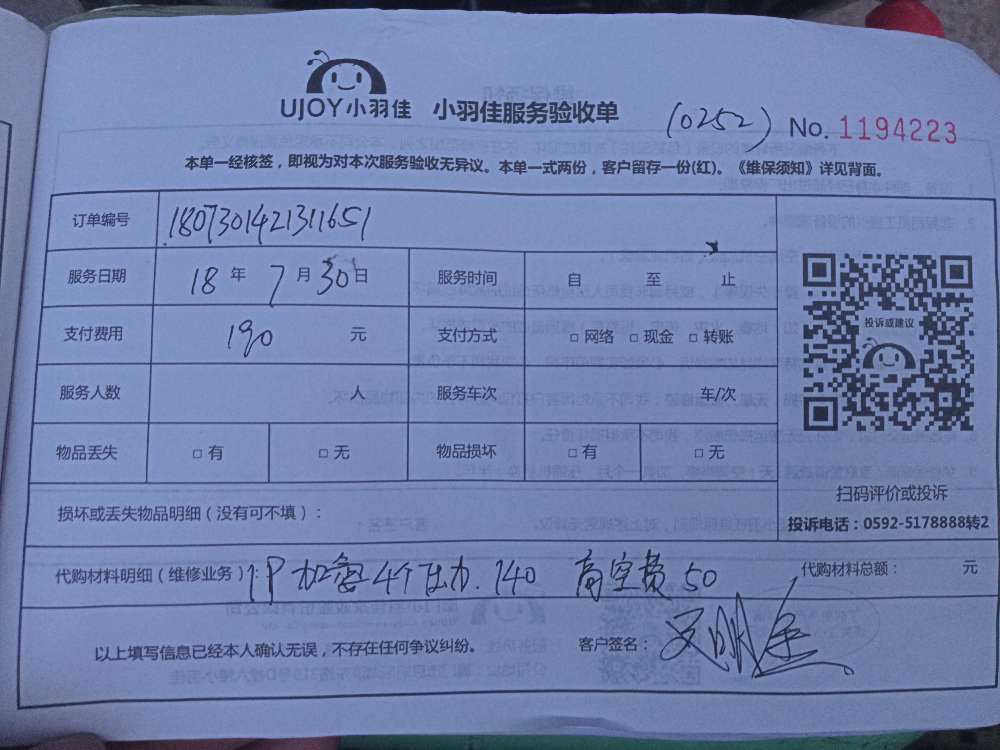 UJOY小羽佳 小羽佳服务验收单 (0252) No. 1194223
本单一经核签，即视为对本次服务验收无异议。本单一式两份，客户留存一份(红)。《维保须知》详见背面。
订单编号 1807301421311651
服务日期 18 年 7 月 30 日 服务时间 自 至 止
投诉或建议
支付费用 190 元 支付方式 □ 网络 □ 现金 □ 转账
服务人数 人 服务车次 车/次
物品丢失 □ 有 □ 无 物品损坏 □ 有 □ 无
扫码评价或投诉
损坏或丢失物品明细（没有可不填）：
投诉电话：0592-5178888转2
代购材料明细（维修业务）：1P 加氟4个压力.140 高空费50 代购材料总额： 元
以上填写信息已经本人确认无误，不存在任何争议纠纷。 客户签名：